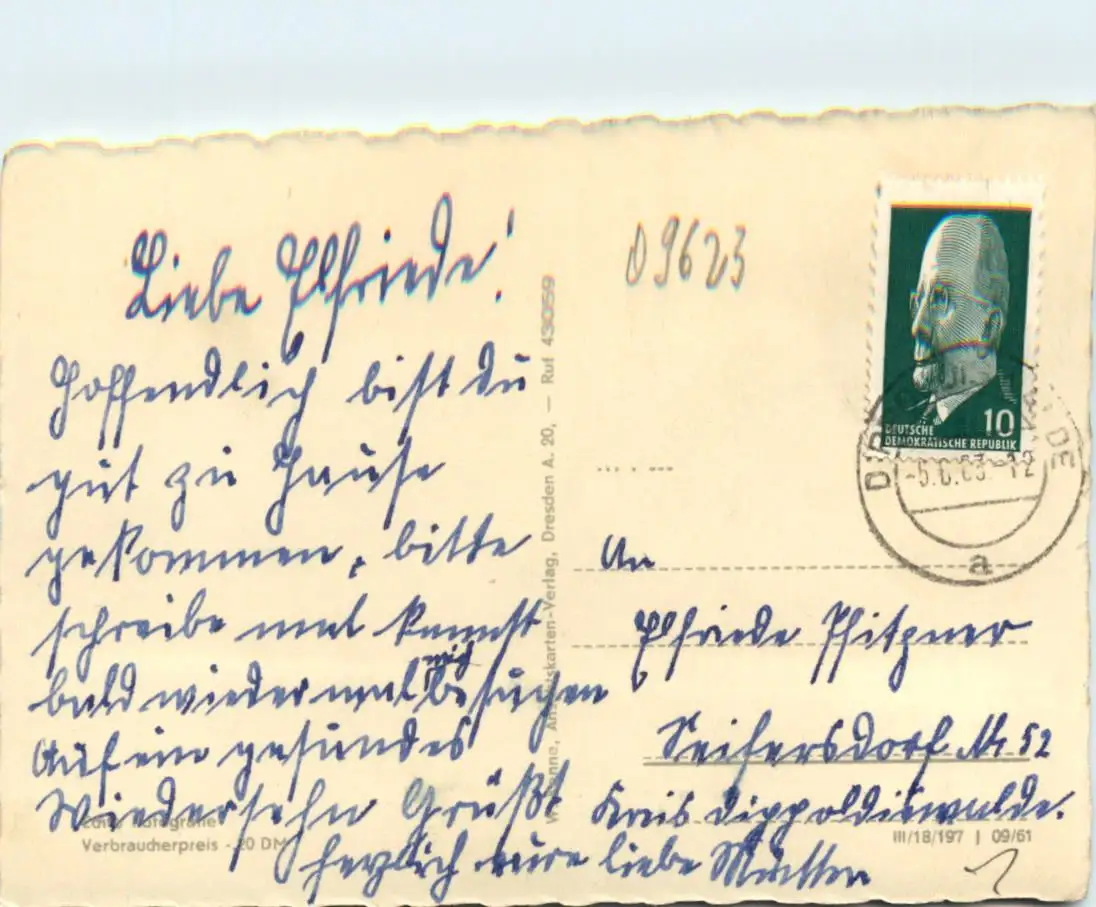 Liebe Elfriede!
Hoffendlich bist du
gut zu Hause
gekommen, bitte
schreibe mal kannst
bald wieder mal mich besuchen
Auf ein gesundes
Wiedersehn Grüßt
herzlich eure liebe Mutter
09623
DEUTSCHE
DEMOKRATISCHE REPUBLIK
10
a
An
Elfriede Pfitzner
Seifersdorf Nr 52
Kreis Dippoldiswalde.
Ansichtskarten-Verlag, Dresden A. 20, — Ruf 43059
Verbraucherpreis -.20 DM
III/18/197 | 09/61
1